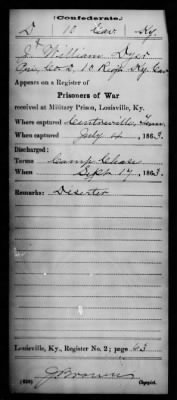 (Confederate.)
D 10 Cav. Ky.
J William Dyer
Co. D, 10 Regt Ky Cav
Appears on a Register of
Prisoners of War
received at Military Prison, Louisville, Ky.
Where captured Centreville, Tenn.
When captured July 4, 1863.
Discharged:
Terms Camp Chase
When Sept 17, 1863.
Remarks: Deserter
Louisville, Ky., Register No. 2; page 63
(639) J Brown Copyist.